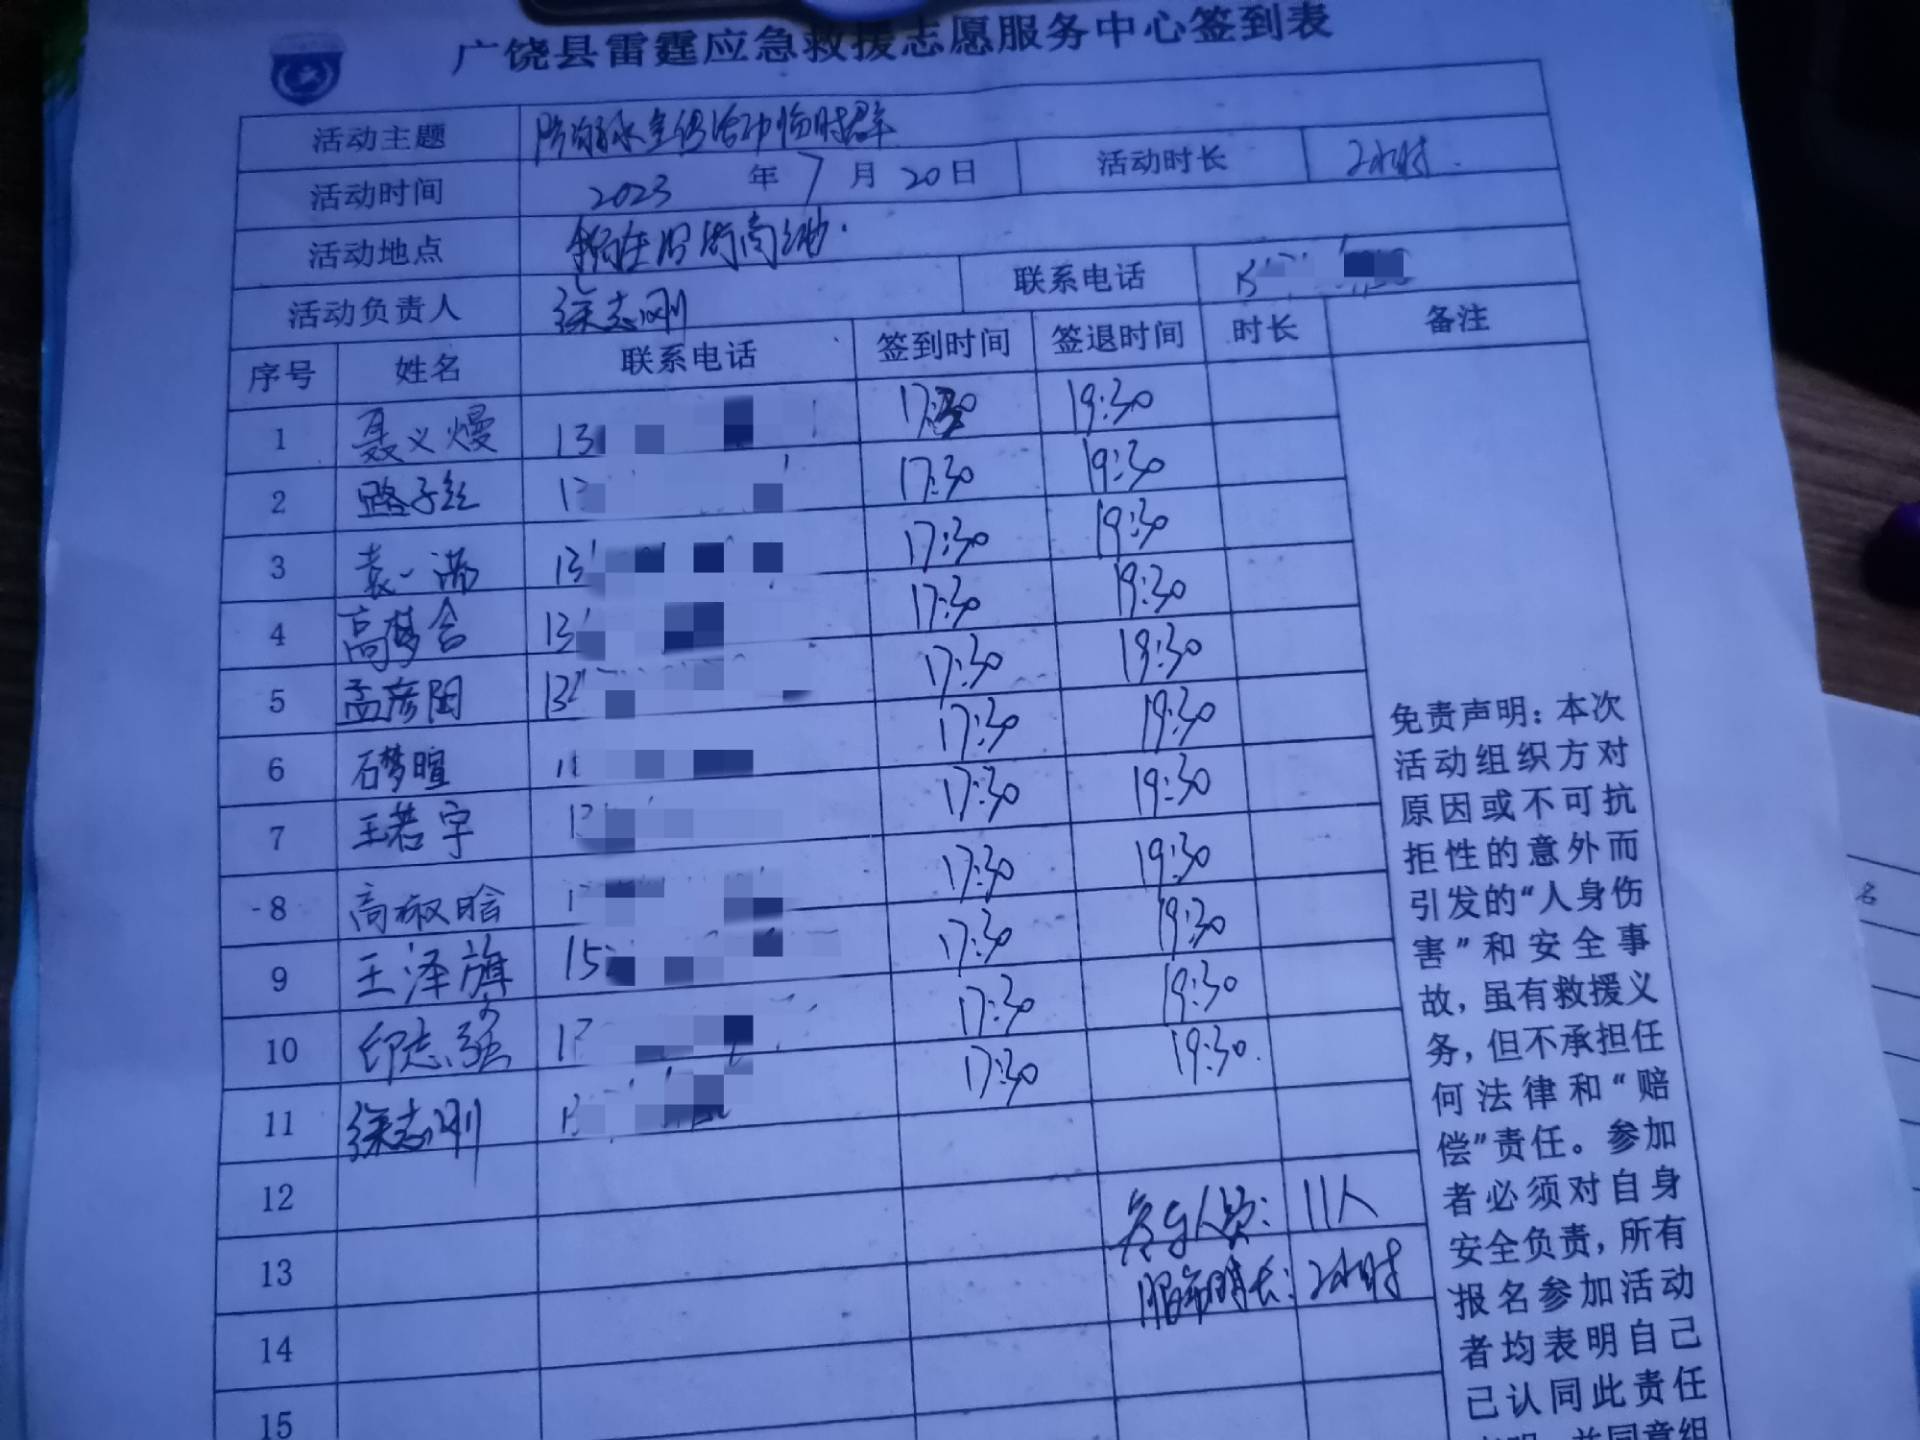 广饶县雷霆应急救援志愿服务中心签到表
活动主题 防溺水宣传活动临时群
活动时间 2023 年 7 月 20 日 活动时长 2小时.
活动地点
活动负责人 徐志刚 联系电话
序号 姓名 联系电话 签到时间 签退时间 时长 备注
1 聂义熳 13 17:30 19:30
2 路子丝 17:30 19:30
3 袁一涵 13 17:30 19:30
4 高梦含 13 17:30 19:30
5 孟彦阳 13 17:30 19:30
6 石梦暄 17:30 19:30
7 王若宇 17:30 19:30
8 高椒晗 17:30 19:30
9 王泽旗 15 17:30 19:30
10 印志强 17:30 19:30
11 徐志刚 17:30 19:30.
12
参与人员: 11人
13
服务时长: 2小时
14
15
免责声明：本次
活动组织方对
原因或不可抗
拒性的意外而
引发的“人身伤
害”和安全事
故，虽有救援义
务，但不承担任
何法律和“赔
偿”责任。参加
者必须对自身
安全负责，所有
报名参加活动
者均表明自己
已认同此责任
名